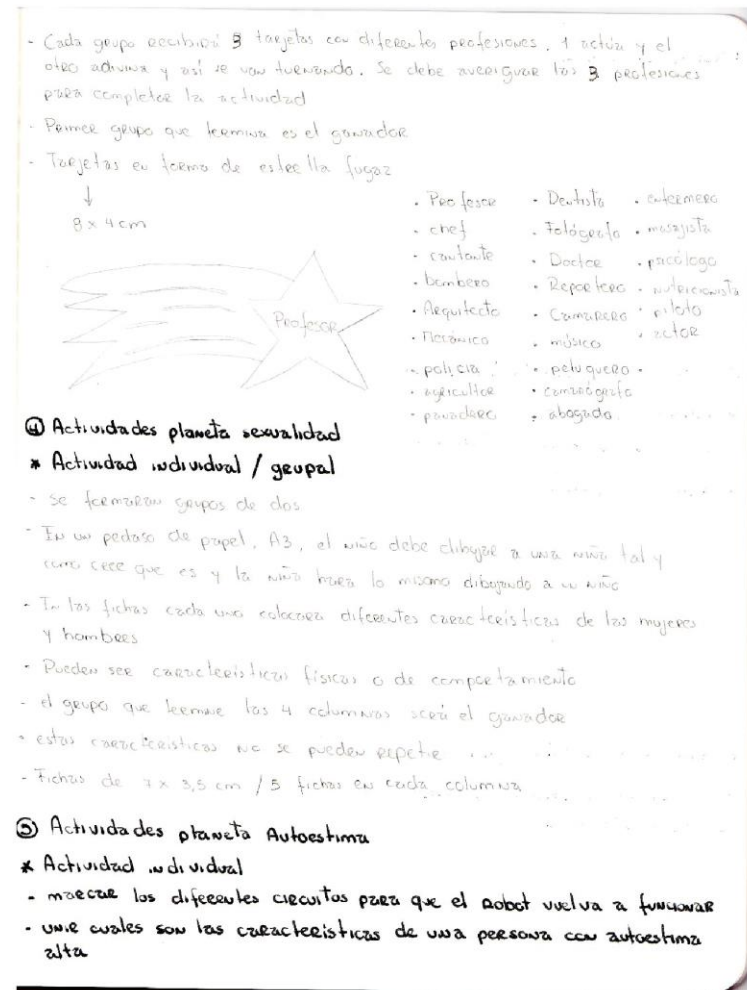 - Cada grupo recibirá 3 tarjetas con diferentes profesiones. 1 actúa y el
otro adivina y así se van turnando. Se debe averiguar las 3 profesiones
para completar la actividad
- Primer grupo que termina es el ganador
- Tarjetas en forma de estrella fugaz
↓
8 x 4 cm
Profesor
• Profesor
• chef
• cantante
• bombero
• Arquitecto
• Mecánico
• policía
• agricultor
• panadero
• Dentista
• Fotógrafo
• Doctor
• Reportero
• Camarero
• músico
• peluquero
• camarógrafo
• abogado
• enfermero
• masajista
• psicólogo
• nutricionista
• piloto
• actor
④ Actividades planeta sexualidad
* Actividad individual / grupal
- se formaran grupos de dos
- En un pedaso de papel, A3, el niño debe dibujar a una niña tal y
como cree que es y la niña hara lo mismo dibujando a un niño
- In las fichas cada uno colocara diferentes características de las mujeres
y hombres
- Pueden ser características físicas o de comportamiento
- el grupo que termine las 4 columnas será el ganador
- estas características no se pueden repetir
- Fichas de 7 x 3,5 cm / 5 fichas en cada columna
⑤ Actividades planeta Autoestima
* Actividad individual
- marcar los diferentes circuitos para que el Robot vuelva a funcionar
- unir cuales son las características de una persona con autoestima
alta